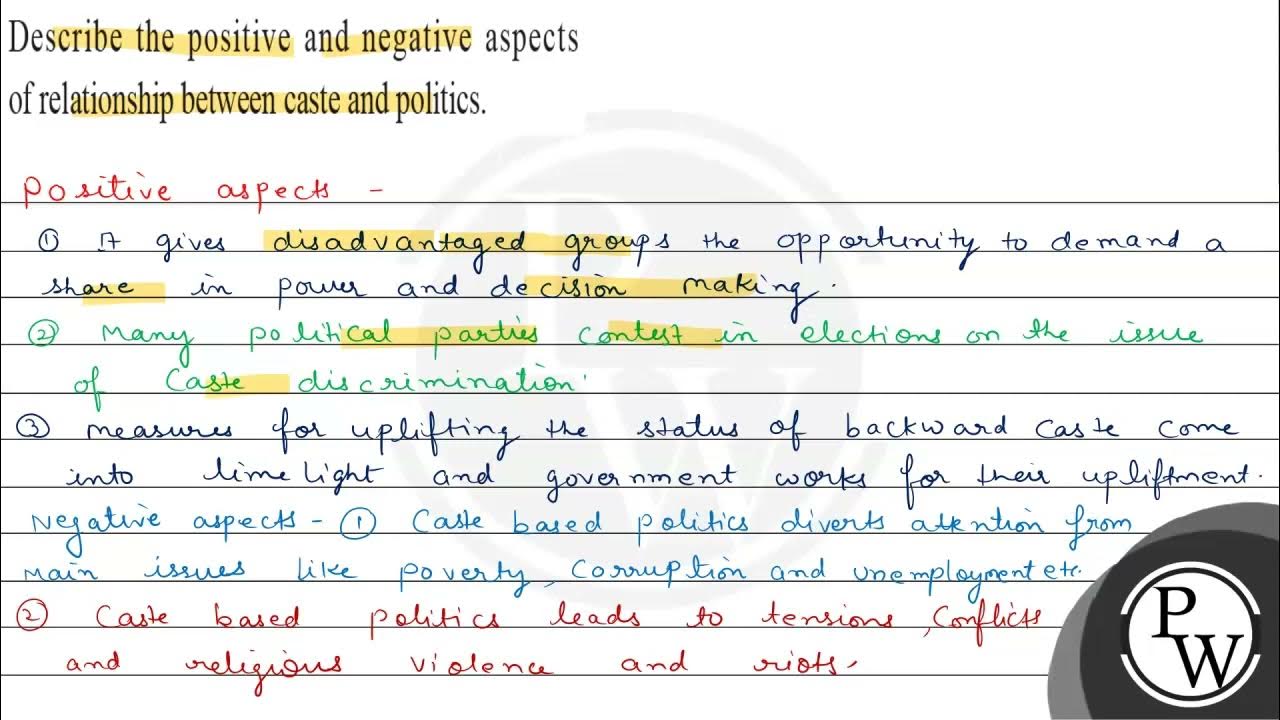 Describe the positive and negative aspects
of relationship between caste and politics.
Positive aspects -
① It gives disadvantaged groups the opportunity to demand a
share in power and decision making.
② Many political parties contest in elections on the issue
of Caste discrimination.
③ measures for uplifting the status of backward caste come
into limelight and government works for their upliftment.
Negative aspects - ① Caste based politics diverts attention from
main issues like poverty, corruption and unemployment etc.
② Caste based politics leads to tensions, conflicts
and religious violence and riots.
P
W
PW